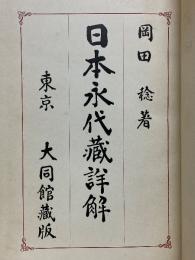 岡田稔著
日本永代藏詳解
東京 大同館藏版